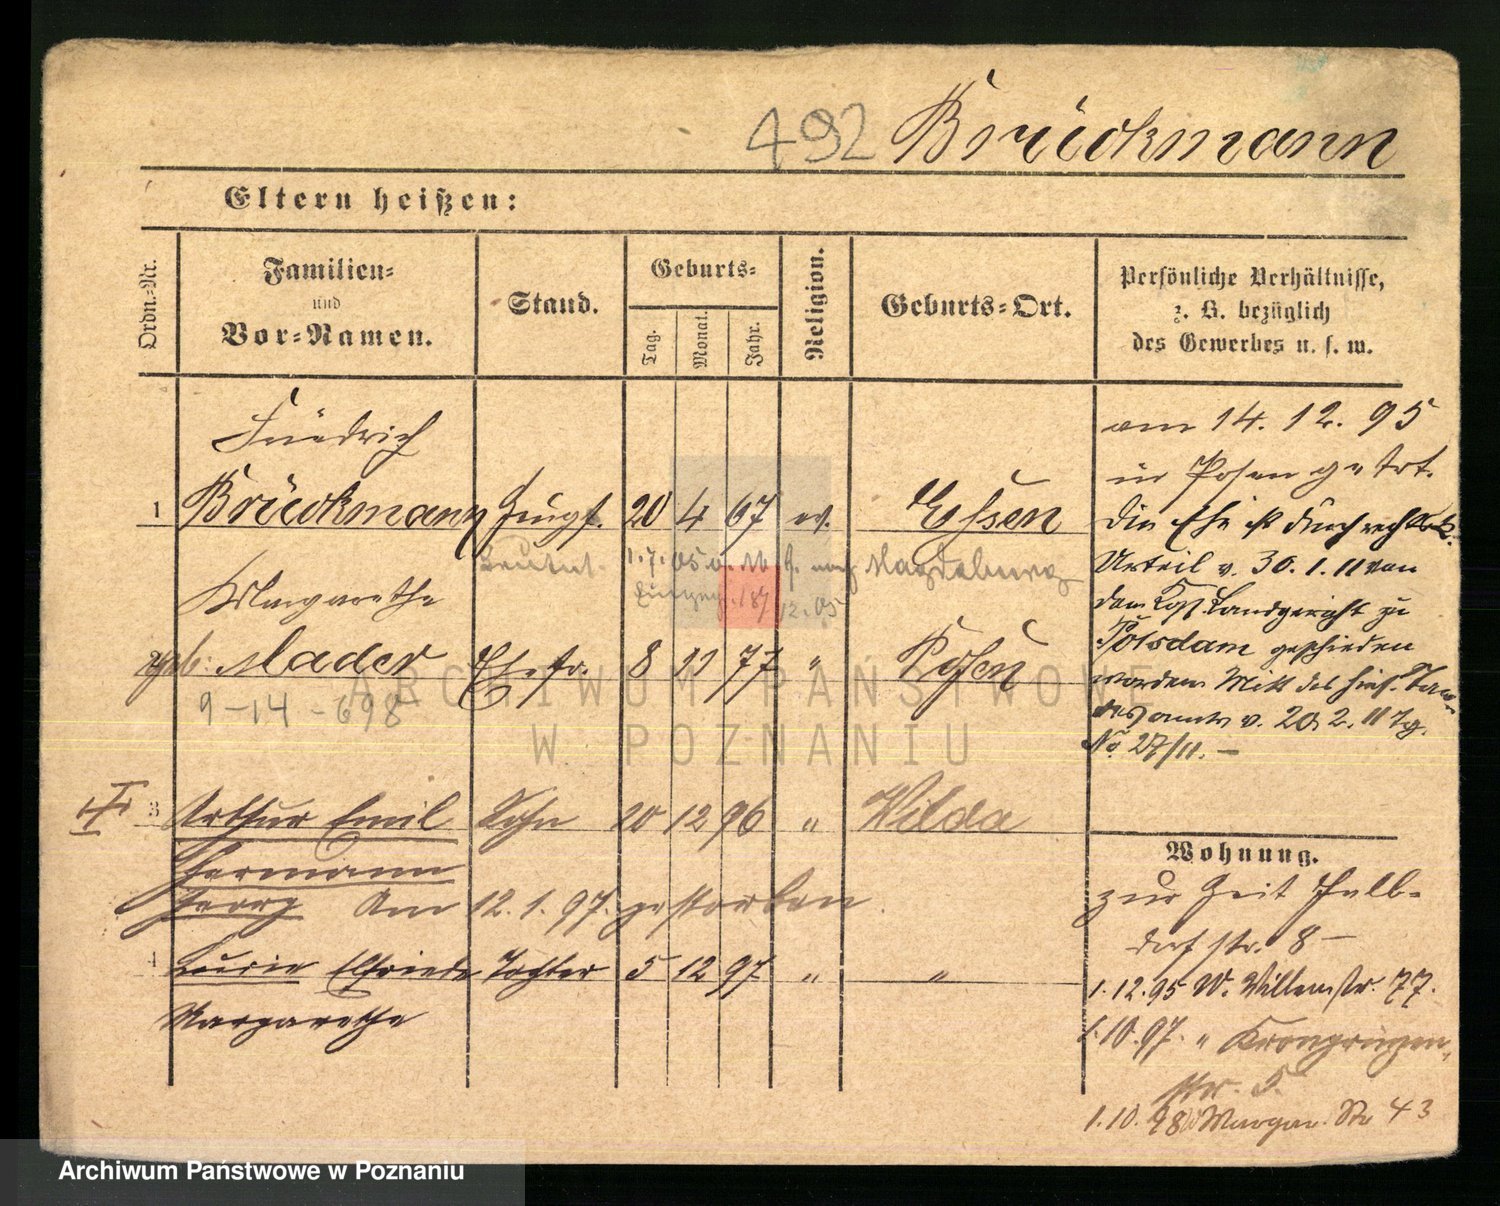 492 Brückmann
Eltern heißen:
Ordn.-Nr.
Familien-
und
Vor-Namen.
Stand.
Geburts-
Tag.
Monat.
Jahr.
Religion.
Geburts-Ort.
Persönliche Verhältnisse,
z. B. bezüglich
des Gewerbes u. s. w.
Friedrich
1 Brückmann 20 4 67 ev. Essen
1.7.05 n. Magdeburg
12.05
Margarethe
geb: Mader Ehefr. 8 11 77 " Posen
9-14-698
3 Arthur Emil Sohn 20 12 96 " Wilda
Hermann
Georg Am 12.1.97. gestorben.
4 Elfriede Tochter 5 12 97 " "
Margarethe
am 14. 12. 95
in Posen getrt.
Die Ehe ist durch rechtskr.
Urteil v. 30.1.11 von
dem Kgl. Landgericht zu
Potsdam geschieden
worden Mitt. des hies. Stan-
desamts v. 20.2.11 Tg.
No 27/11. —
Wohnung.
zur Zeit
str. 8 —
1.12.95 W. 77.
1.10.97. " Kronprinzen-
str. 5.
1.10.98 Str 43
ARCHIWUM PAŃSTWOWE
W POZNANIU
Archiwum Państwowe w Poznaniu